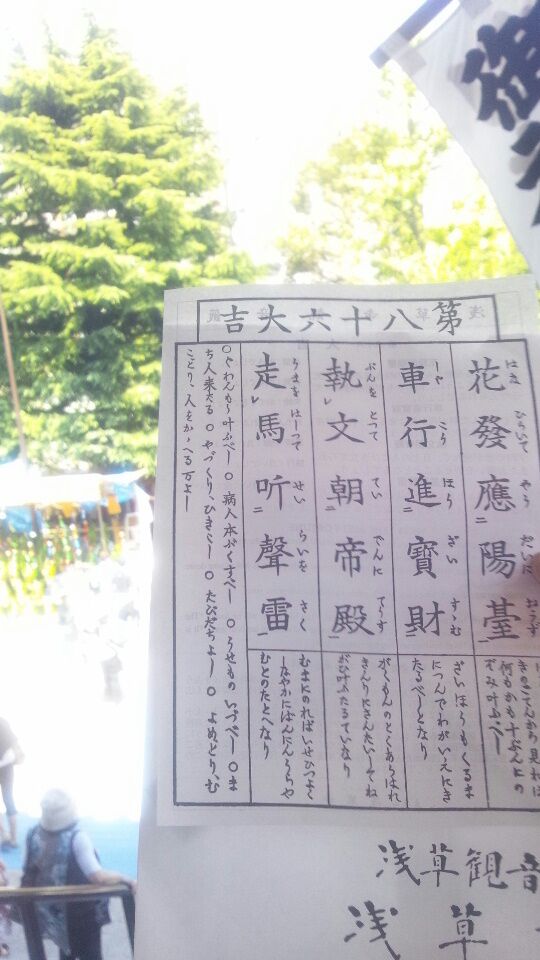 御
第八十六大吉
花發應陽臺
はな ひらいて やう だいに おうず
何もかも十ぶんにの
ぞみ叶ふべし
車行進寶財
しや こう ほう ざい すゝむ
ざいほうもくるま
につんでわがいえにき
たるべしとなり
執文朝帝殿
ぶんを とつて てい でんに てうす
がくもんのとくあらはれ
きんりにさんだいしてね
がひ叶ふたるていなり
走馬听聲雷
うまを はしつて せい らいを きく
むまにのればいせひつよく
しなやかにばんにんうらや
むとのたとへなり
○ぐわんもう叶ふべし ○病人本ぶくすべし ○うせものいづべし ○ま
ち人来たる ○やづくり、ひきこし ○たびだちよし ○よめどり、む
ことり、人をかゝへる万よし
浅草観音
浅草